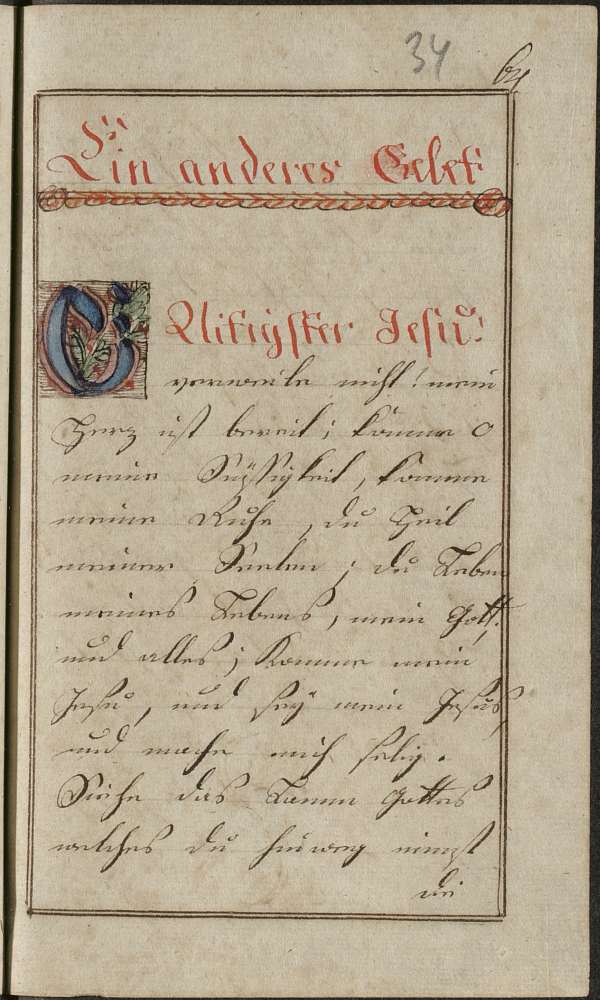 34
64
Ein anderes Gebet:
Gütigster Jesu:
verweile nicht! mein
Herz ist bereit; komme O
meine Süssigkeit, komme
meine Ruhe, du Heil
meiner Seelen; du Leben
meines Lebens, mein Gott,
und alles; Komme mein
Jesu, und sey mein Jesus,
und mache mich selig.
Siehe das Lamm Gottes
welches du hinweg nimst
die